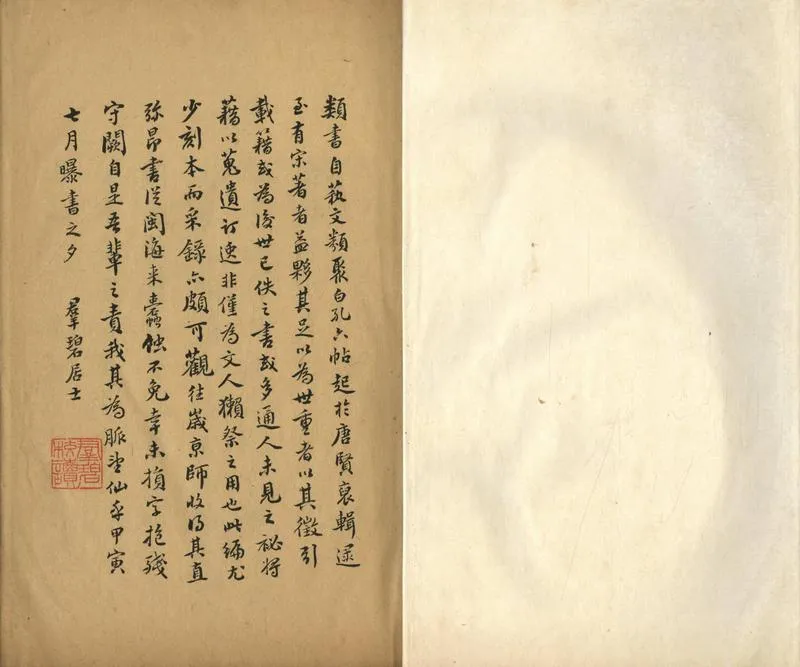 類書自藝文類聚白孔六帖起於唐賢裒輯逮
至有宋著者益夥其足以為世重者以其徵引
載籍或為後世已佚之書或多通人未見之祕將
藉以蒐遺訂逸非僅為文人獺祭之用也此編尤
少刻本而采錄亦頗可觀往歲京師收得其直
弥昂書從閩海来蠹蝕不免幸未損字抱殘
守闕自是吾輩之責我其為脈望仙乎甲寅
七月曝書之夕 羣碧居士
羣碧
校讀